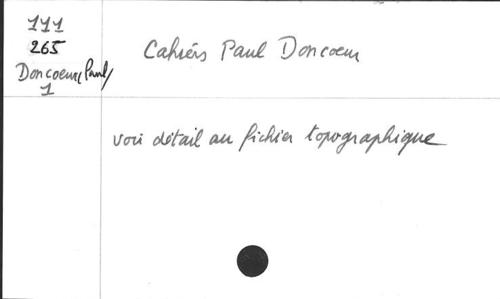 111
265
Doncoeur (Paul)
1
Cahiers Paul Doncoeur
voir détail au fichier topographique